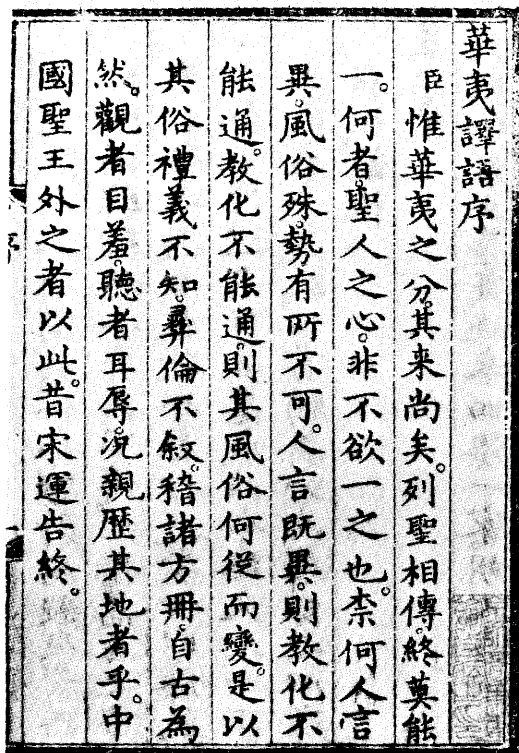 華夷譯語序
臣惟華夷之分。其来尚矣。列聖相傳。終莫能
一。何者。聖人之心。非不欲一之也。柰何人言
異。風俗殊。勢有所不可。人言既異。則教化不
能通。教化不能通。則其風俗何從而變。是以
其俗禮義不知。彛倫不叙。稽諸方冊。自古為
然。觀者目羞。聽者耳辱。况親歷其地者乎。中
國聖王外之者以此。昔宋運告終。
序